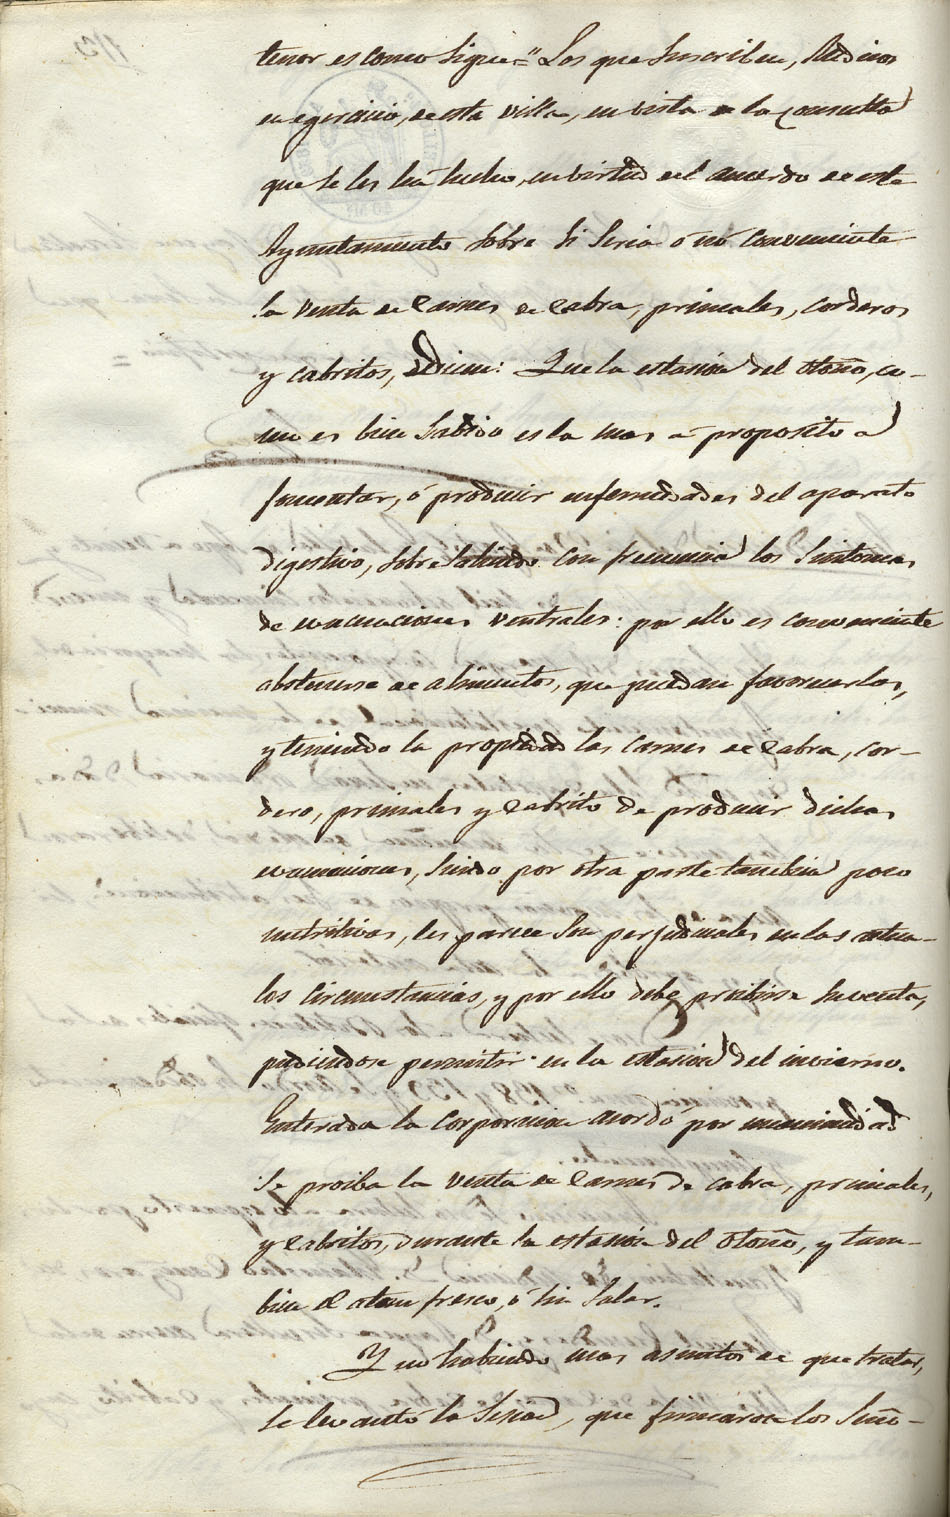 tenor es como sigue=" Los que suscriben, Medicos
en egercicio, de esta villa, en vista de la consulta
que se les ha hecho, en virtud del acuerdo de este
Ayuntamiento sobre si seria ó nó conveniente
la venta de carnes de cabra, primales, corderos
y cabritos, dicen: Que la estasion del otoño, co-
mo es bien sabido es la mas a proposito a
fomentar, ó producir enfermedades del aparato
digestivo, sobresaliendo con frecuencia los sintomas
de evacuaciones ventrales: por ello es conveniente
abstenerse de alimentos, que puedan favorecerlas,
y teniendo la propiedad las carnes de cabra, cor-
dero, primales y cabrito de producir dichas
evacuaciones, siendo por otra parte tambien poco
nutritivas, les parece son perjudiciales en las actua-
les circunstancias, y por ello debe proibirse su venta,
pudiendose permitir en la estasion del invierno.
Enterada la corporacion acordó por unanimidad
se proiba la venta de carnes de cabra, primales,
y cabritos, durante la estasion del otoño, y tam-
bien el atun fresco, ó sin salar.
Y no habiendo mas asuntos de que tratar,
se levantó la sesion, que firmaron los Seño-